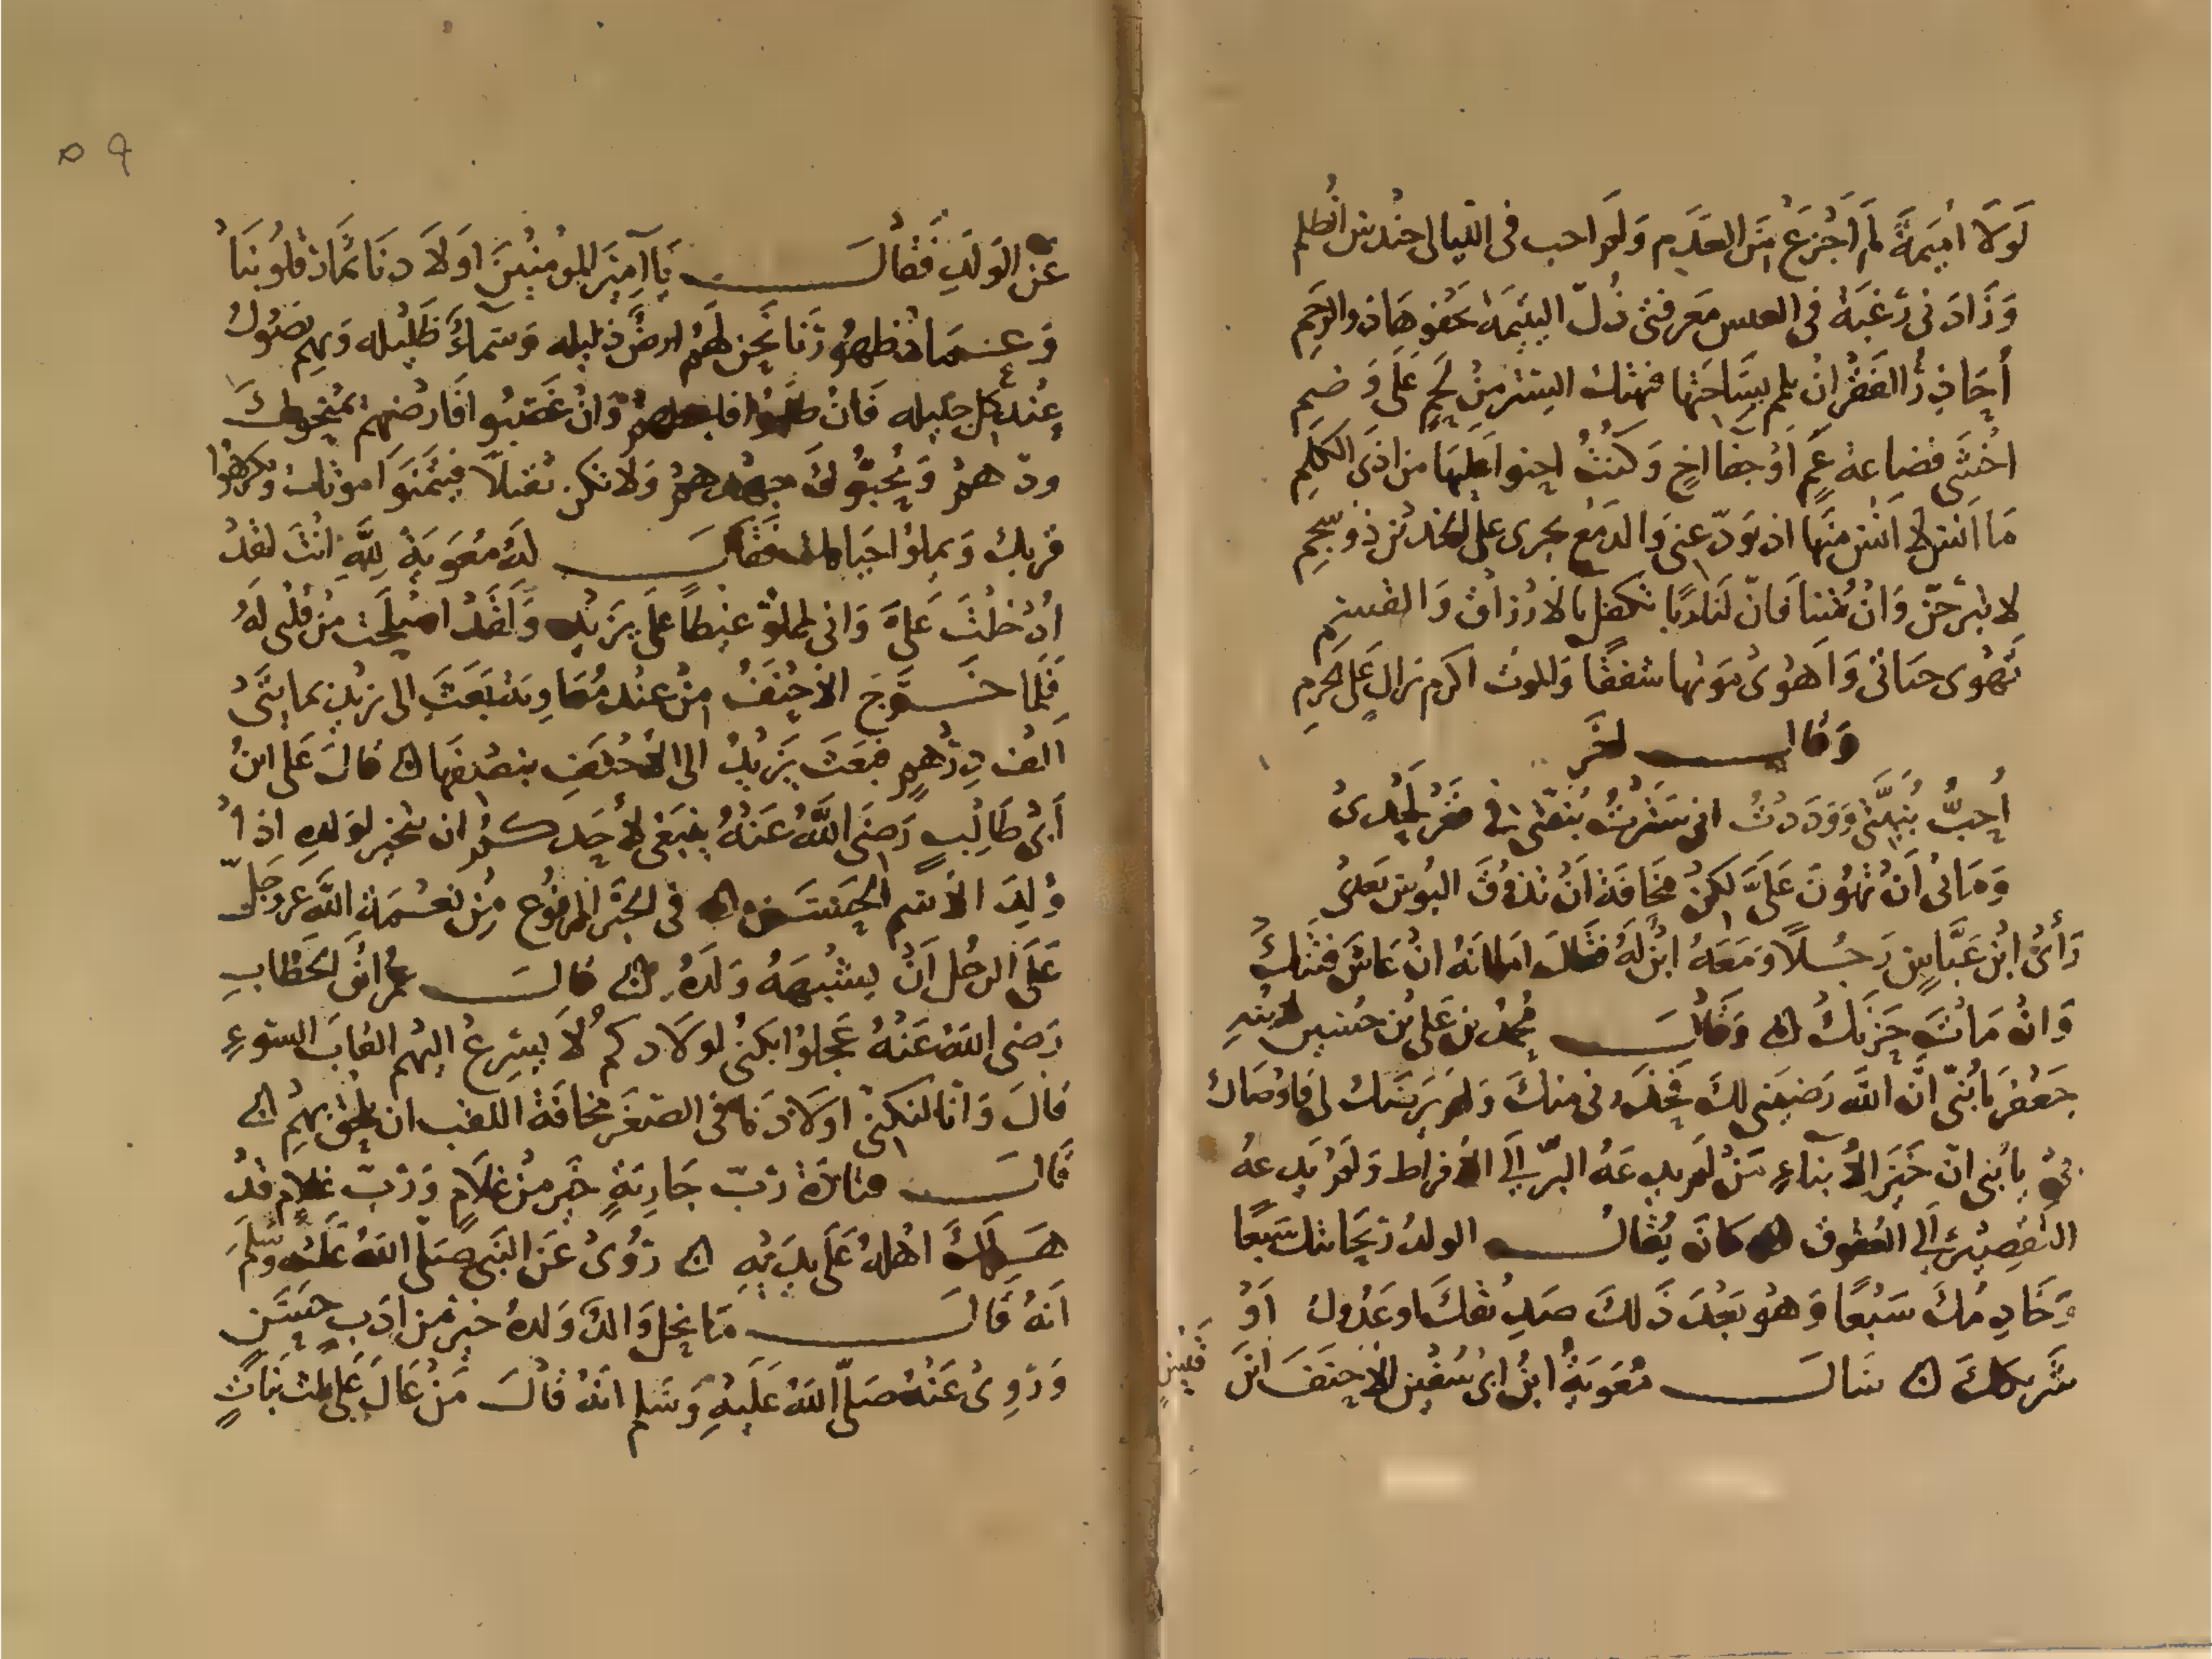 لَولَا اُمَيمَةُ لم اَجْزَعْ مِنَ العَدَمِ وَلَم اجب فى الليالى حندس الظلم
وَزَادَنى رَغبَةً فى العيش مَعرفتى ذُلّ اليَتيمَة يَجفوهَا ذووالرَحِم
أُحَاذِرُ الفَقْرَ انْ يلم بِسَاحَتِهَا فيهتك الستر مِنْ لَحمٍ عَلَى وَضَم
اخْشَى فضاعة عَمٍ اَوْ جفا اخٍ وَكُنْتُ احنو اعليهَا من اذى الكَلِم
مَا اَنسَ لا اَنْسَ منهَا اذ تودّعنى وَالدمع يجرى على الخدين ذو سجم
لا تبرحنّ وَانْ متنا فَانّ لَنَا ربًا تكفل بالارزاق وَالقسم
تَهوى حياتى وَاَهوَى مَوتها شفقًا وَالموت اكرم نزالٍ عَلَى الحرم
وَقال اخَر
اُحِبُّ بُنَيَّتى وَوَدَدْتُ انى سَتَرْتُ بُنَيَّتى فى قعر لَحدى
وَمَا بى اَنْ تَهُونَ عَلَىَّ لَكِنْ مخَافَةَ اَنْ تَذوقَ البُوس بَعدى
رَأَى ابْن عَبَّاسٍ رَجُلًا وَمَعَهُ ابْنٌ لَهُ فَقَالَ اما انَهُ انْ عَاشَ فَتَنَكَ
وَانْ مَاتَ حَزَنَكَ ه وَقَالَ محمدُ بن عَلى بْن حسين لابنه
جَعْفَر يَا بُنىّ انَّ اللهَ رَضِيَنى لَكَ فَحَذَّرَنى منكَ وَلَم يَرضَك لى فَاوْصَاكَ
بى يا بنى ان خَيرَ الابْنآءِ مَنْ لَم يدعهُ البرّ الَى الافراط وَلَم يَدعهُ
التَقصِيرُ الَى العُقوق ه كَانَ يُقَالُ الولدُ ريحَانتك سَبعًا
وَخَادِمُكَ سَبْعًا وَهُو بَعْدَ ذَلكَ صَدِيقكَ اوعَدُوكَ اَوْ
شَريكك ه سَالَ مُعَويَةُ ابْنُ ابى سُفين الاحنَفَ ابْنَ قيسٍ
٥٩
عَنِ الوَلَدِ فَقَالَ يَا اَمِيرَ المؤمنِينَ اَولَادنَا ثمَارُ قلوبنَا
وَعمَادُ ظهُورنَا نَحن لهم ارضٌ ذليله وَسَمآءٌ ظَلِيله وَبهم نصُول
عِنْدَ كل جَليله فَانْ طلبوا فاعطهمْ وَانْ غَضِبُوا فَارضهم يمنحوكَ
ودّهمْ وَيُحِبُّوكَ جهدهم وَلَا تكن ثقيلًا فيَتَمَنَوَا موتك ويكرهوا
قربك وَيملوا حياتك فَقَالَ لَهُ مُعَويَة لِلَّهِ انْتَ لقدْ
دَخَلتَ عَلَىَّ وَانى لمملوٌ غيظًا عَلَى يزيد وَلَقَدْ اصْلحت مِنْ قلبى لَهُ
فَلمَا خَرَجَ الاحنَفُ مِنْ عِنْد مُعَاويه بَعَثَ الى يزيد بمايتَى
الف دِرهمٍ فبَعَثَ يَزيدُ الى الاحنَفِ بنصفهَا ه قَالَ عَلى ابنُ
اَبى طَالِبٍ رَضىَ اللهُ عَنْهُ ينبَغى لاحَدكم ان يتخير لوَلدِه اذا
وُلِدَ الاسم الحَسَن ه فى الخَبَر المرفُوع مِنْ نعْمَةِ اللهِ عَز وَجَلّ
عَلَى الرجُل اَنْ يشبهَهُ وَلدهُ ه قَالَ عمر ابنُ الخَطابِ
رَضى اللهُ عَنْهُ عَجلوا بكنى اولَادكم لَا يسرِعُ اليهم القابَ السَّوءِ
قَالَ وَانَا لنكنى اولَادَنَا فى الصّغَر مخَافَة اللقب ان يلحق بهِمْ ه
قَالَ قتَادَة رُبّ جَارِيَةٍ خَير مِنْ غلَامٍ وَرُبّ غلَامٍ قدْ
هَلَكَ اهلهُ عَلَى يَدَيْهِ ه رُوىَ عَن النَبى صَلى اللهُ عَلَيْه وَسَلمَ
اَنهُ قَالَ مَا نحل وَالدٌ وَلدهُ خيرٌ من اَدَبٍ حسَنٍ
وَرُوِىَ عَنْهُ صَلى اللهُ عَلَيهِ وَسَلم انهُ قَالَ مَنْ عَالَ ثلث بنَاتٍ